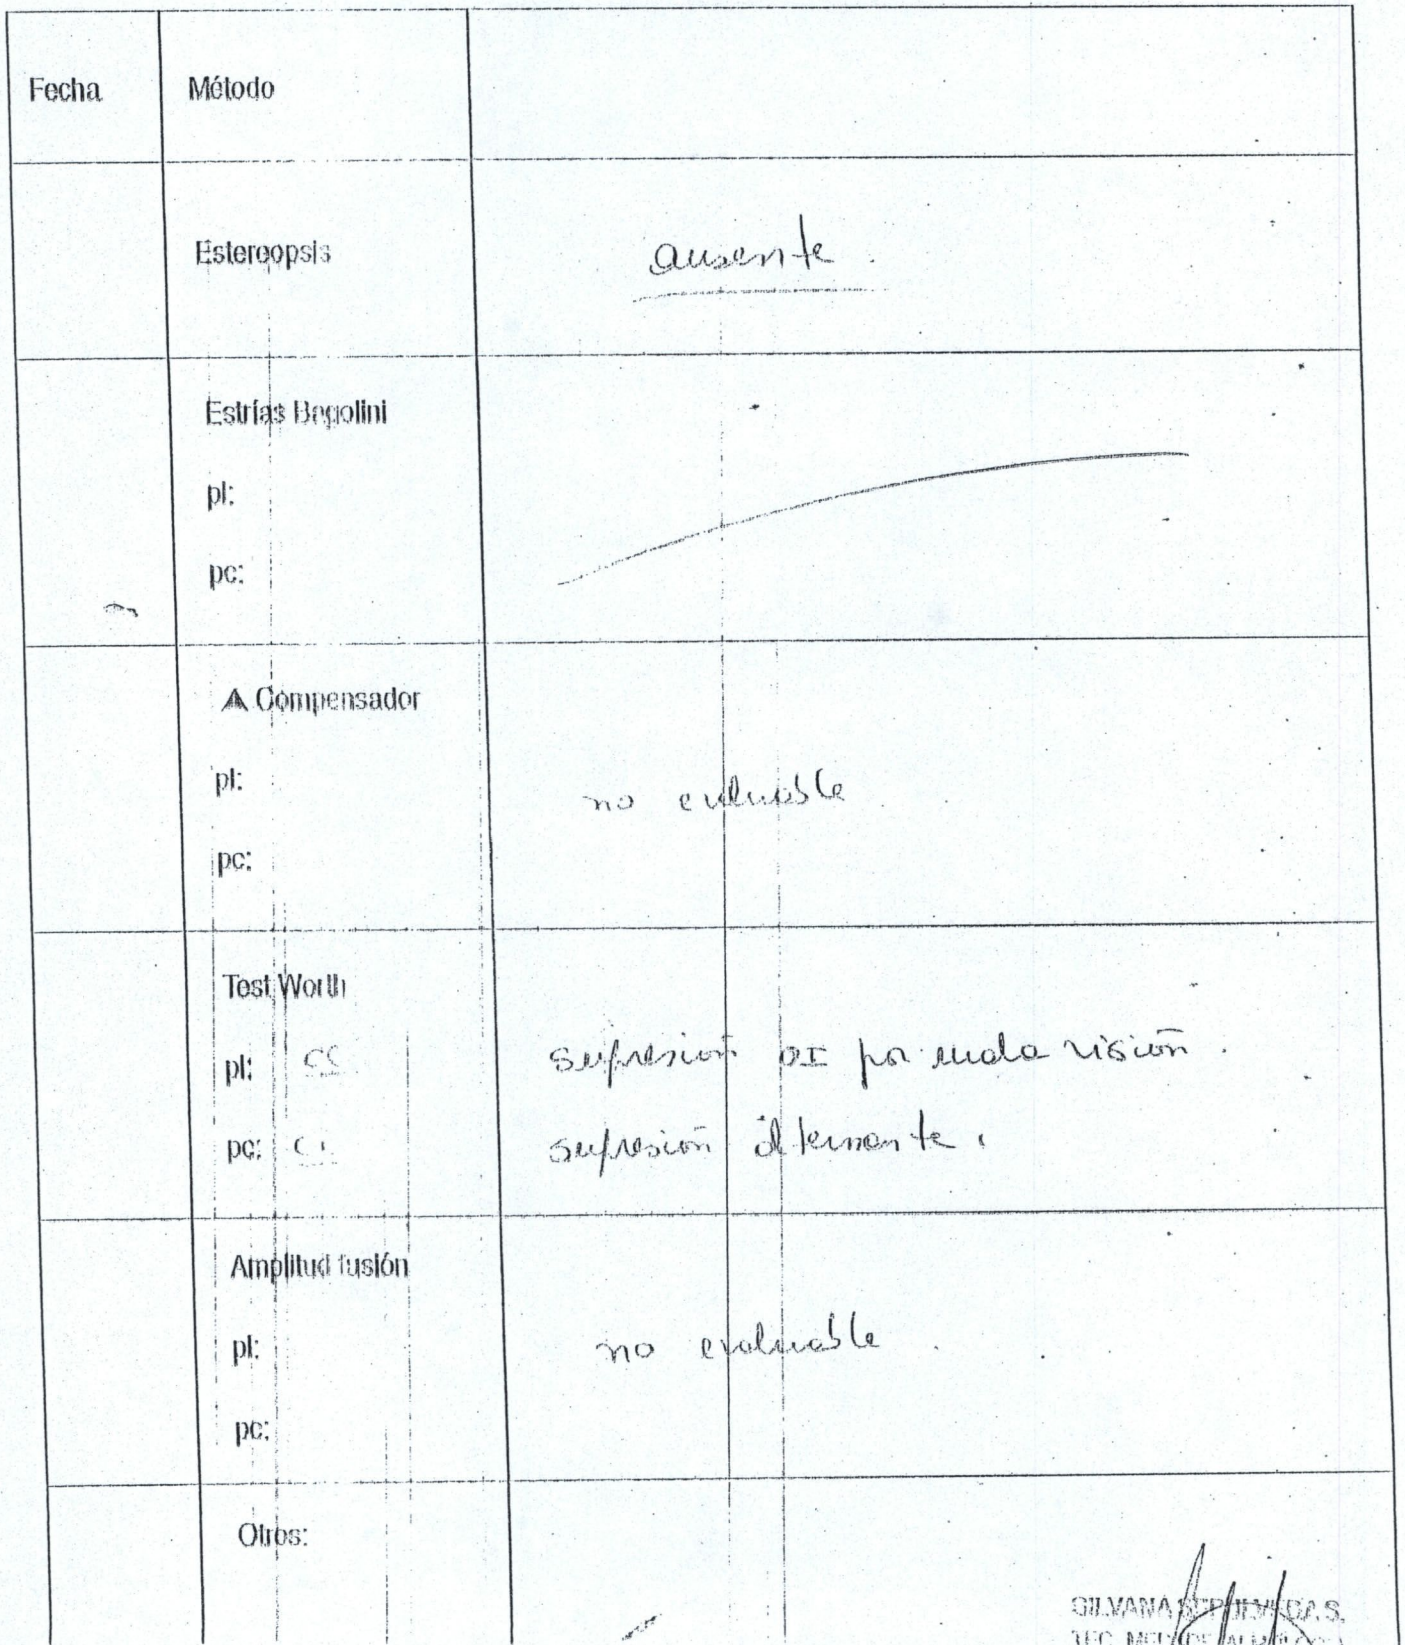 Fecha Método
Estereopsis ausente.
Estrías Bagolini
pl:
pc:
Compensador
pl:
no evaluable
pc:
Test Worth
pl: CC supresión OI por mala visión.
pc: supresión alternante.
Amplitud fusión
pl: no evaluable.
pc:
Otros:
GILVANA SEPULVEDA S.
TEC. MED.